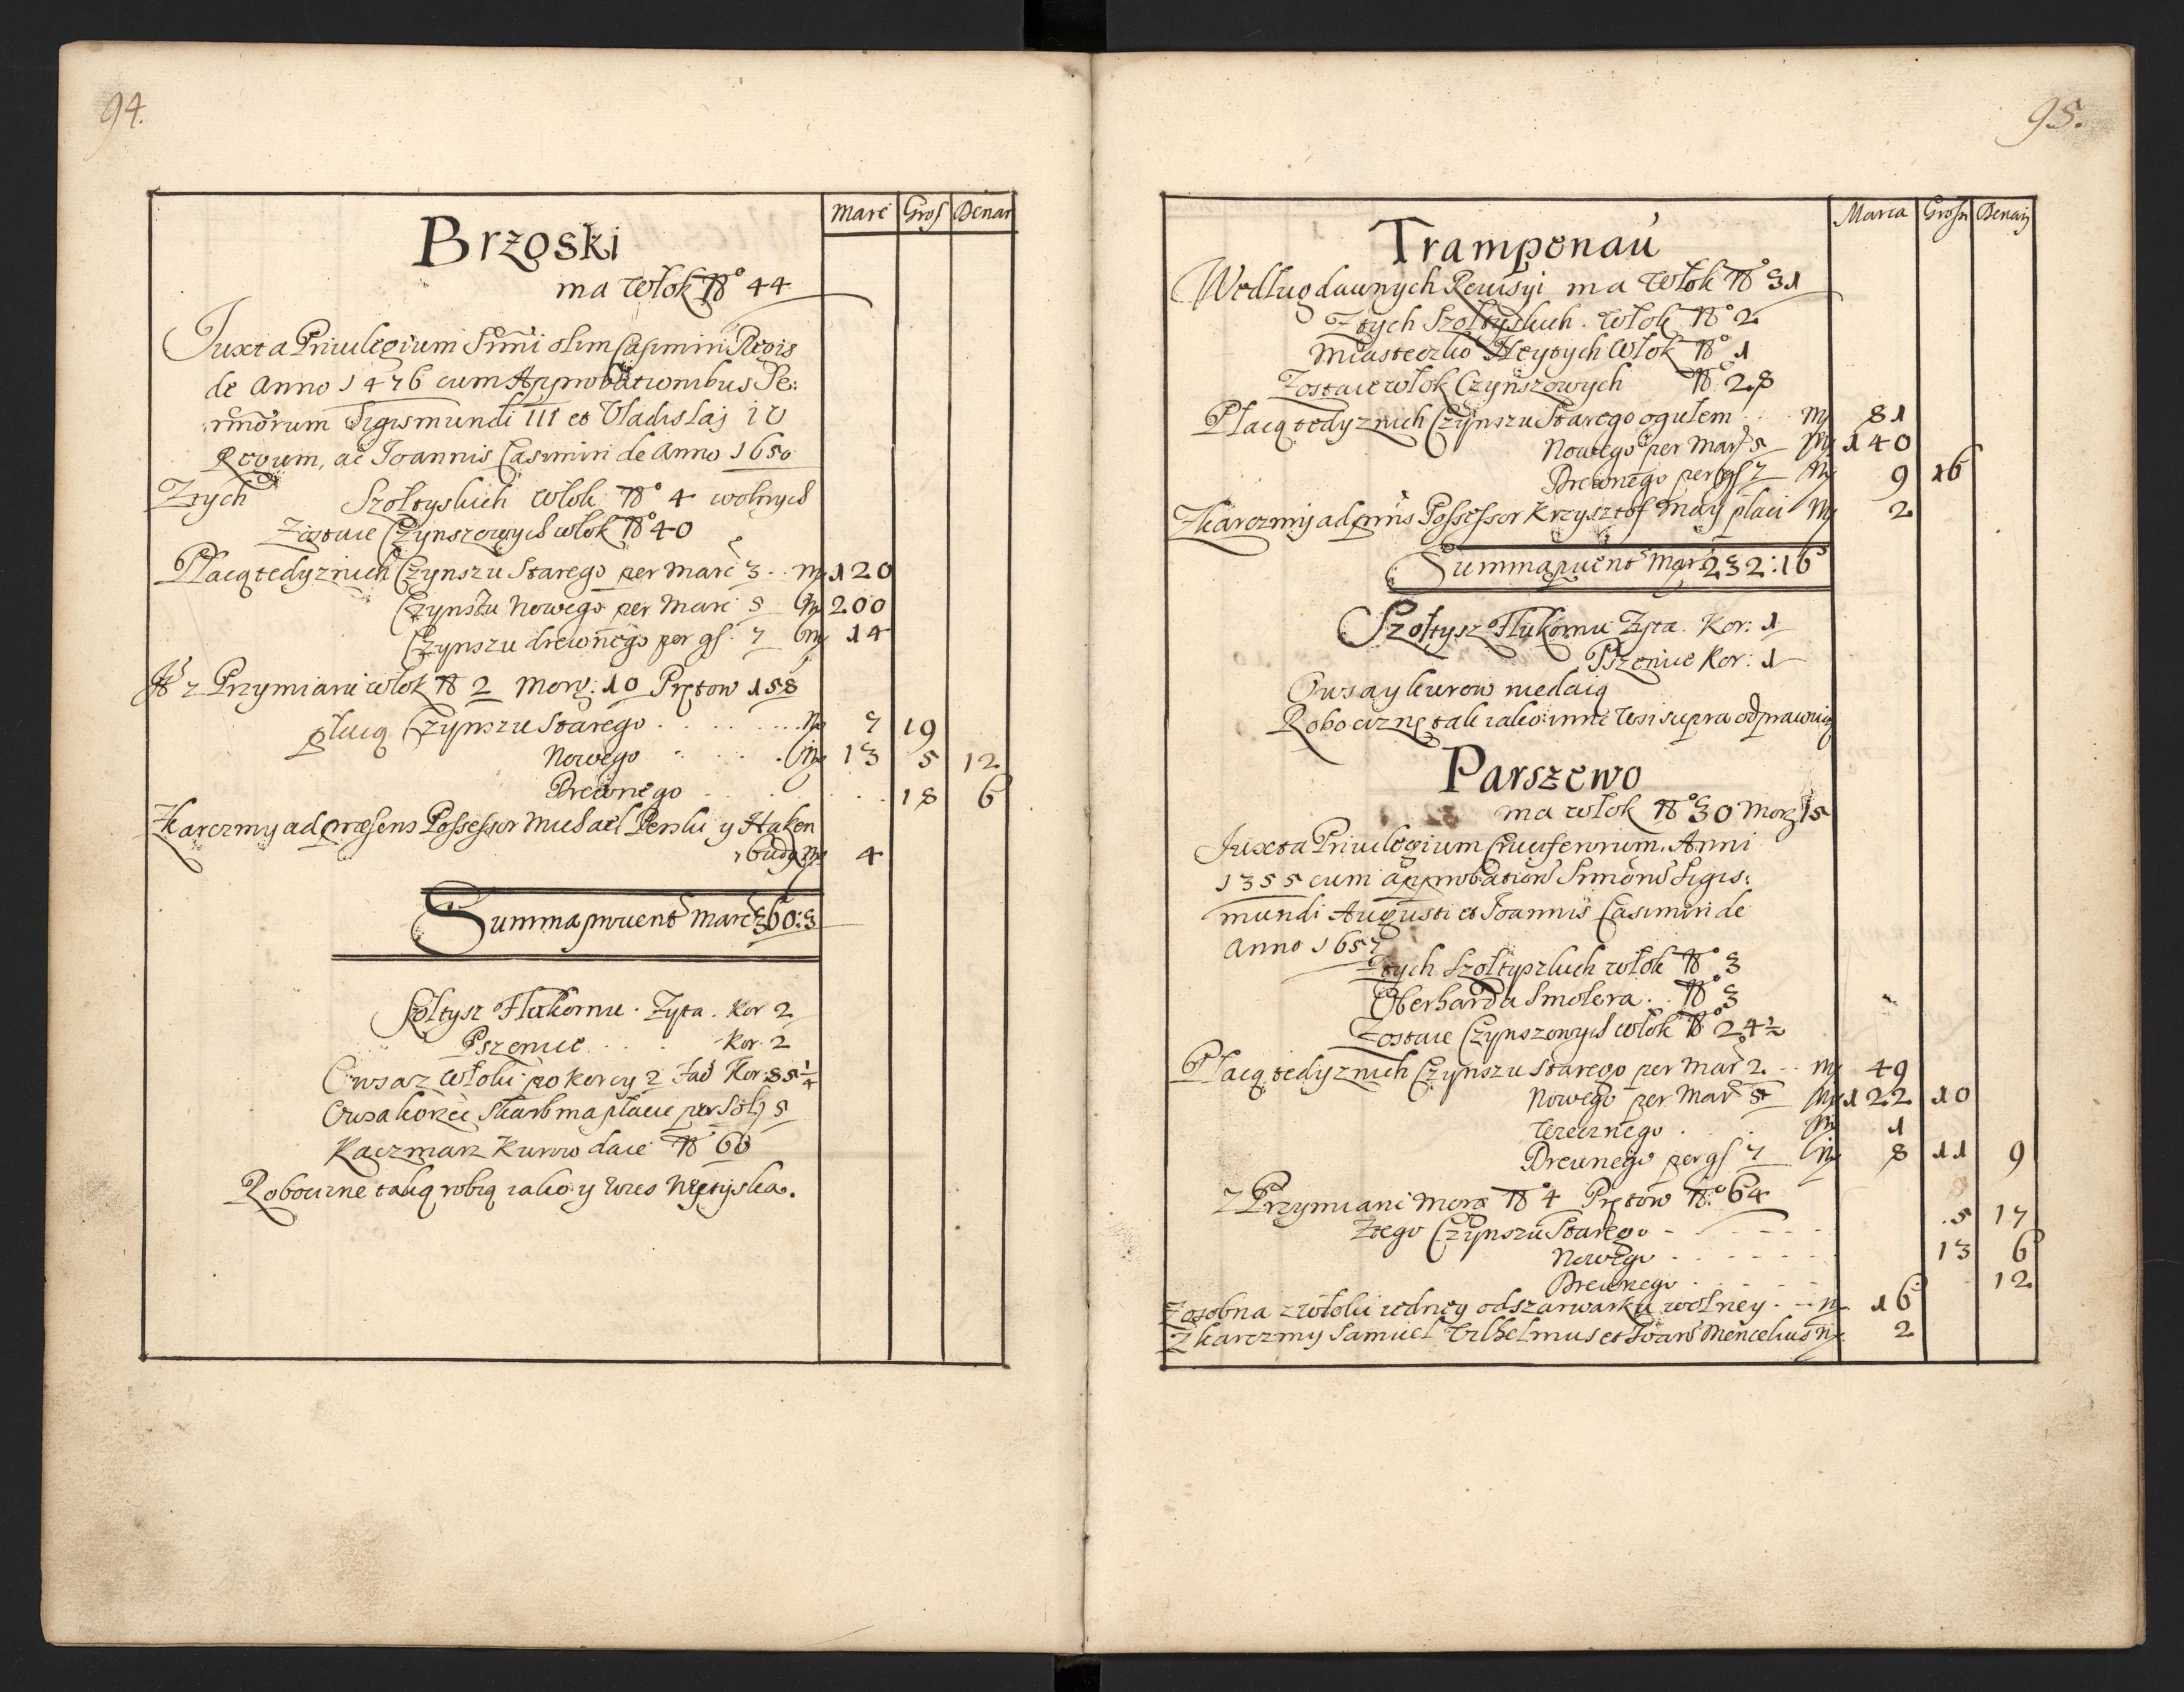 94.
Marc Gros Denar
Brzoski
ma Włok No 44
Juxta Priuilegium Smi olim Casimiri Regis
de Anno 1476 cum Approbationibus Se:
rmorum Sigismundi III et Vladislaj IV
Regum, ac Joannis Casimiri de Anno 1650
Ztych Szołtyskich włok No 4 wolnych
Zostaie Czynszowych włok No 40
Płacą tedy znich Czynszu Starego per Marc 3 .. m 120
Czynszu Nowego per Marc 5 m 200
Czynszu drewnego per gs. 7 m 14
z Przymiaru włok No 2 Morg: 10 Prętow 158
płacą Czynszu Starego . . . . . . m 7 19
Nowego . . . . m 13 5 12
Drewnego . . . . 18 6
Zkarczmy ad præsens Possessor Michael Penski y Haken
budy m 4
Summa prouent Marc 360:3
Szołtysz Hlukomu . Zyta . Kor 2
Pszenice . . . Kor. 2
Owsa z Włoki po Korcy 2 fad Kor: 85 1/4
Owsa korzec Skarb ma płacic per Sol 5
Kaczmarz Kurow daie No 60
Robocizne taką robią iako y wies Nętyska.
95.
Marca Grossi Denarij
Tramponau
Według dawnych Rewisyi ma Włok No 31
Ztych Szołtyskich . Włok No 2
Miasteczko Neytych Włok No 1
Zostaie włok Czynszowych No 28
Płacą tedy znich Czynszu Starego ogułem . . m 81
Nowego per Mar 5 m 140
Drewnego per gs 7 m 9 16
Zkarczmy ad præns Possessor Krzysztof May płaci m 2
Summa prouent Marc 232:16
Szołtysz Hlukomu Zyta . Kor: 1
Pszenice Kor: 1
Owsa y kurow niedaią
Robociznę tak iako inne Wsi supra odprawuią
Parszewo
ma włok No 30 Morg 15
Juxta Priuilegium Cruciferorum. Anni
1355 cum approbatione Smorum Sigis:
mundi Augusti et Joannis Casimiri de
Anno 1657
Ztych Szołtyszkich włok No 3
Oberharda Smolera . . No 3
Zostaie Czynszowych włok No 24 1/2
Płacą tedy znich Czynszu Starego per Mar 2 . . m 49
Nowego per Mar 5 m 122 10
Wiecznego . . m 1
Drewnego per gs 7 m 8 11 9
z Przymiaru Morg No 4 Prętow No 64
Ztego Czynszu Starego - . . . . 5 17
Nowego . . . . . 13 6
Drewnego . . . . . 12
Zosobna z włoki iedney od szarwarku wolney . . m 16
Zkarczmy Samuel Wilhelmus et Joan Mencelius m 2